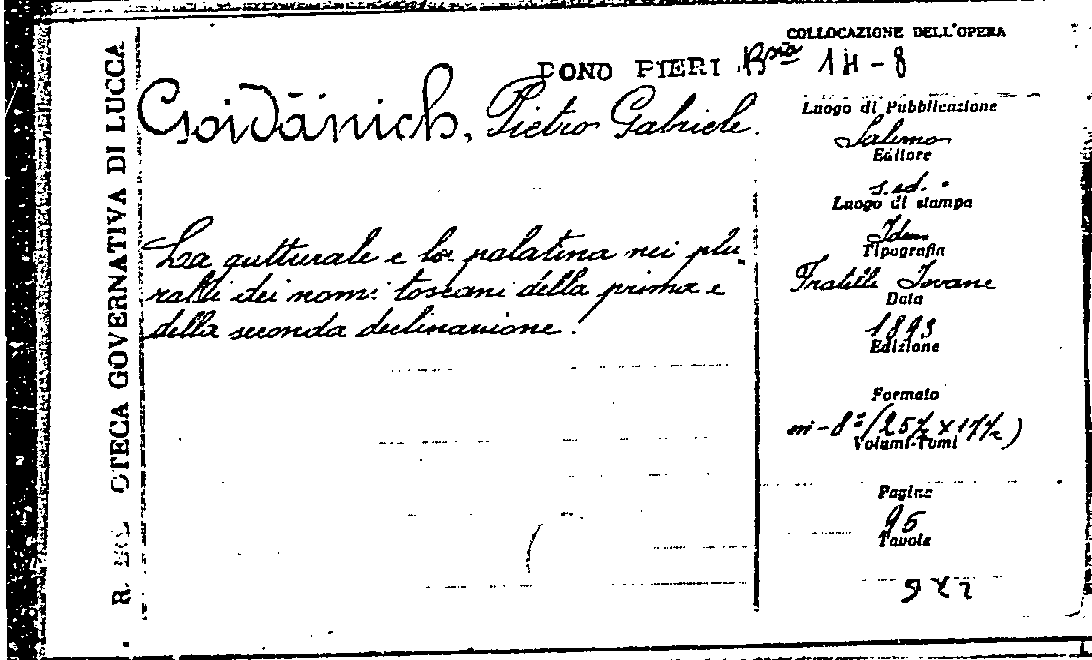 COLLOCAZIONE DELL'OPERA
DONO PIERI Bsta 1H-8
Goidànich, Pietro Gabriele.
La gutturale e la palatina nei plu-
ralli dei nomi toscani della prima e
della seconda declinazione.
Luogo di Pubblicazione
Salerno
Editore
s.ed.
Luogo di stampa
Idem
Tipografia
Fratelli Jovane
Data
1893
Edizione
Formato
in-8º (25½ x 17½)
Volumi-Tomi
Pagine
95
Tavole
R. OTECA GOVERNATIVA DI LUCCA